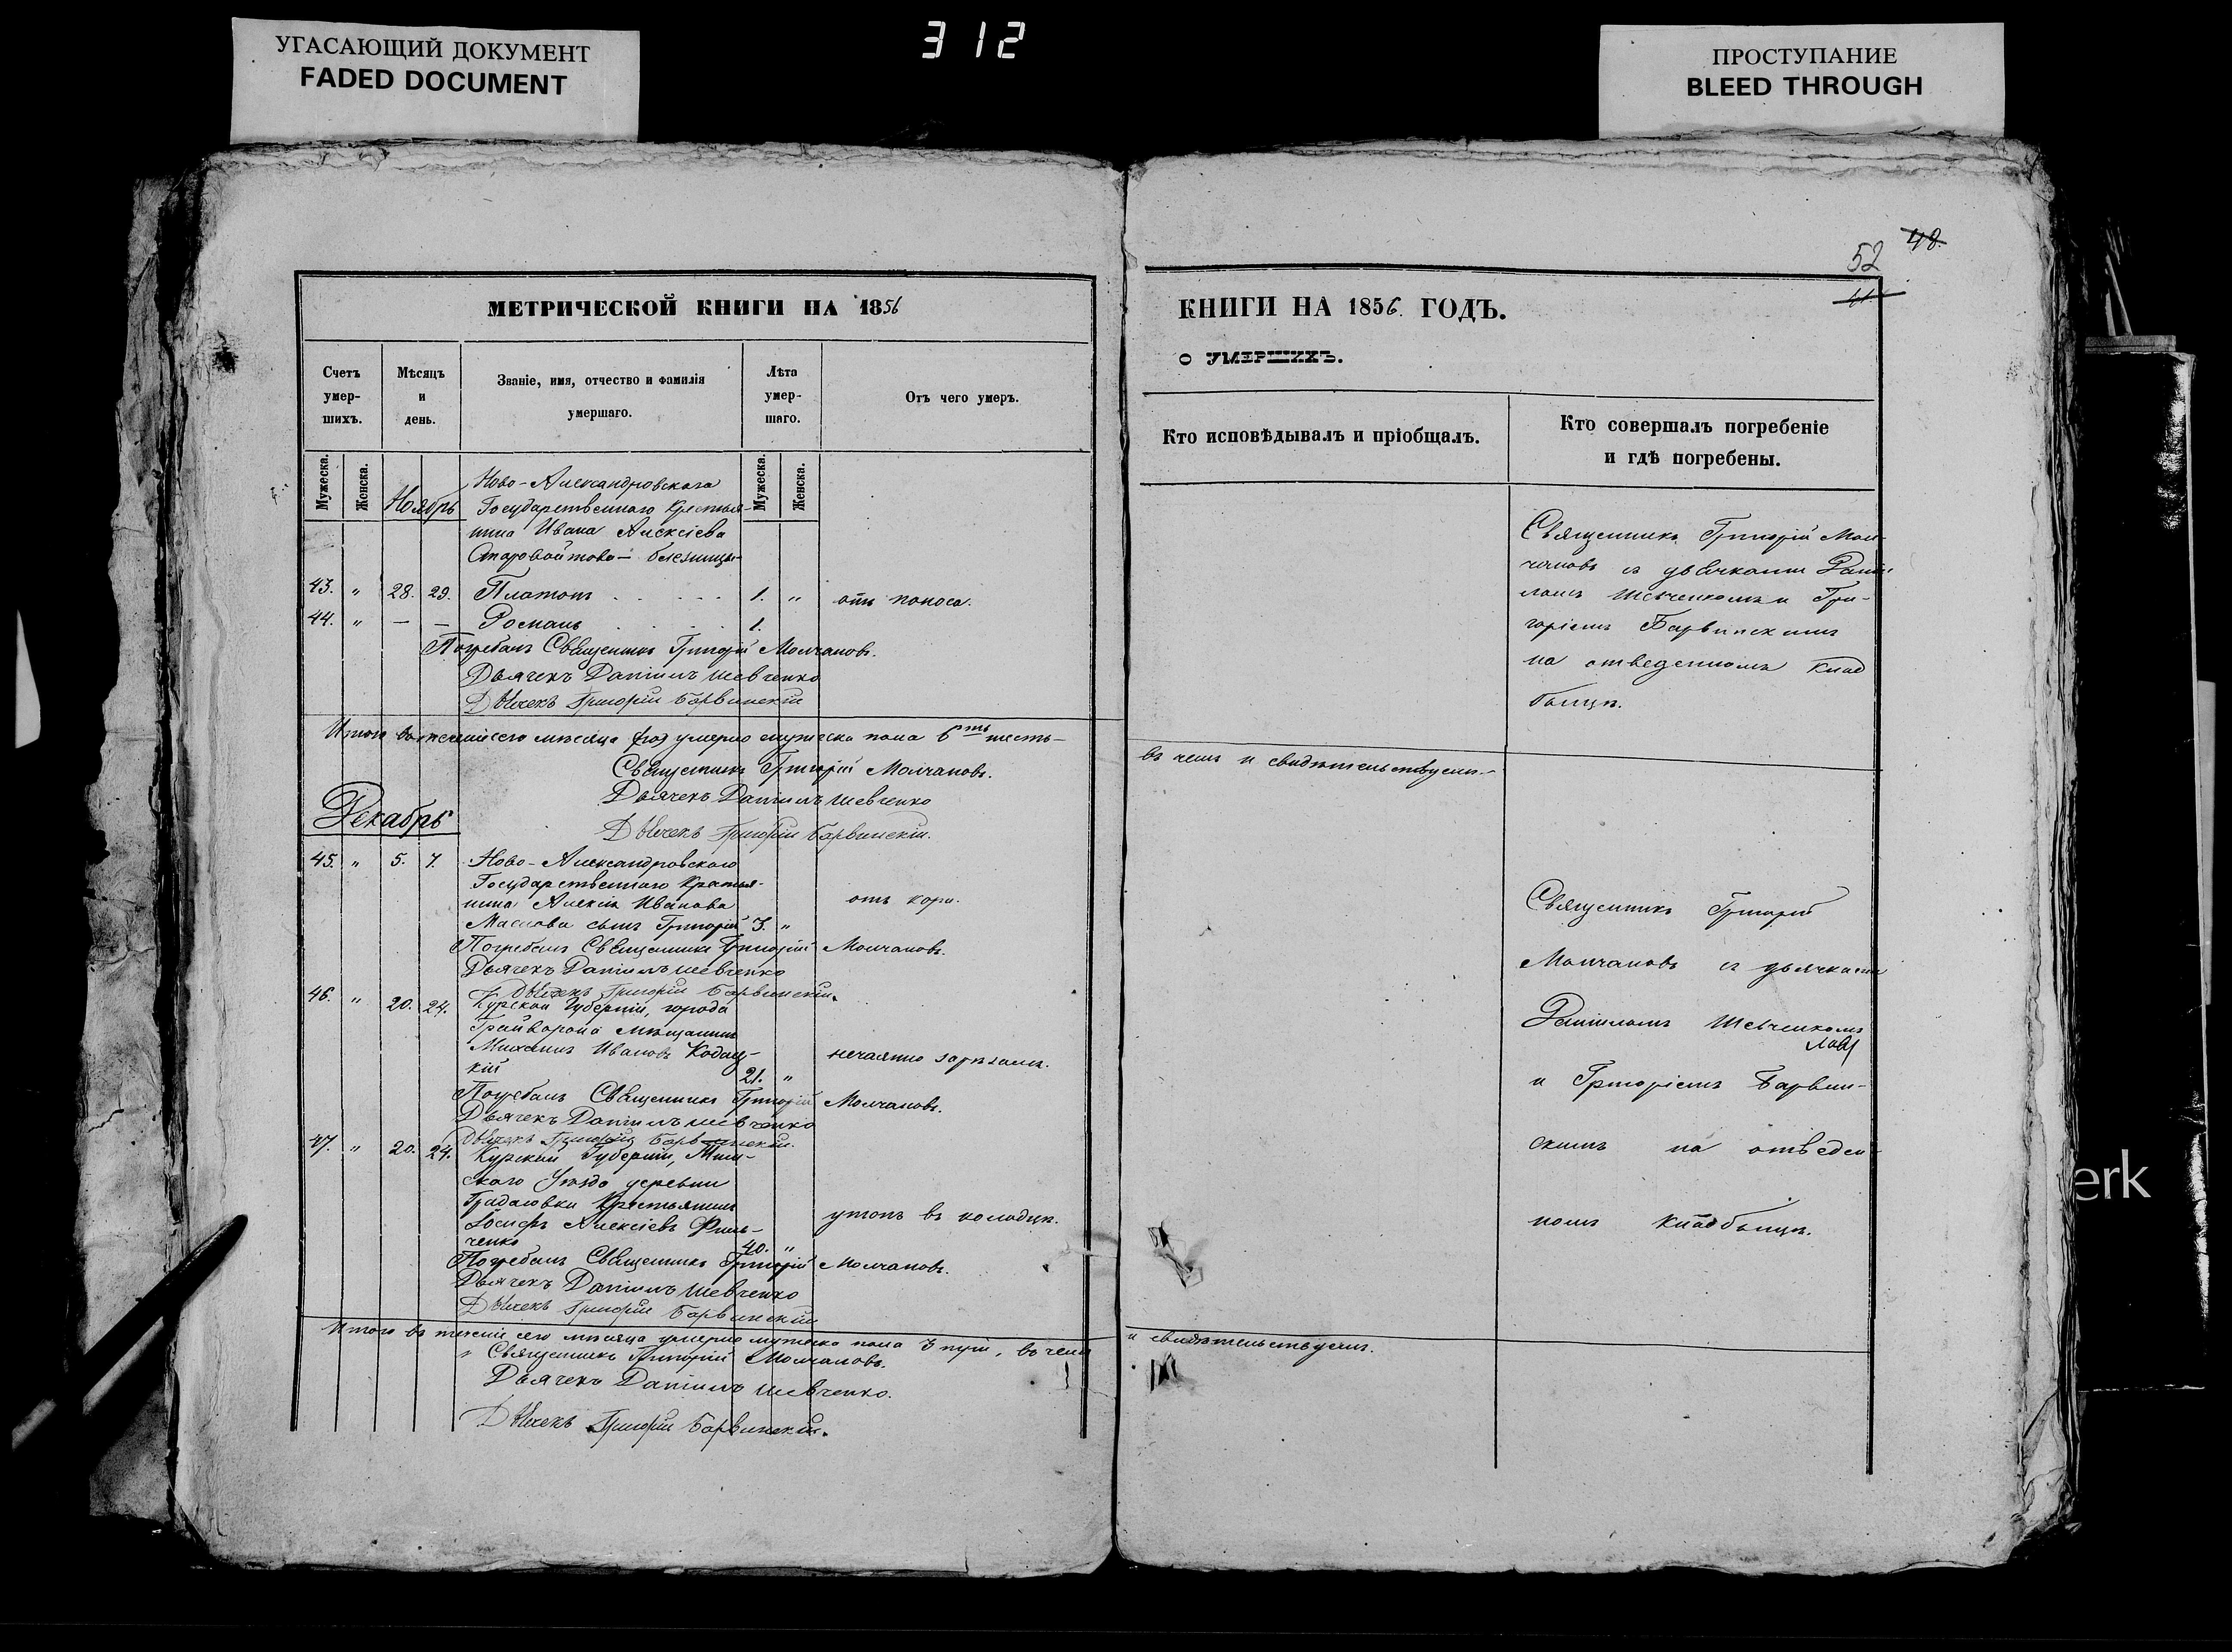 УГАСАЮЩИЙ ДОКУМЕНТ
FADED DOCUMENT
312
ПРОСТУПАНИЕ
BLEED THROUGH
МЕТРИЧЕСКОЙ КНИГИ НА 1856
Счетъ умер-шихъ.
Мѣсяцъ и день.
Званіе, имя, отчество и фамилія умершаго.
Лѣта умер-шаго.
Отъ чего умеръ.
Мужеска.
Женска.
Мужеска.
Женска.
Ноябрь
Ново-Александровскаго
Государственнаго Крестья-
нина Ивана Алексіева
Старовойтова – близнецы
43. " 28. 29. Платонъ 1. " отъ поноса.
44. " — — Романъ 1.
Погребалъ Священникъ Григорій Молчановъ.
Дьячекъ Даніилъ Шевченко
Дьячекъ Григорій Барвинскій
Итого въ теченіи сего мѣсяца умерло мужеска пола 6ть шесть –
Священникъ Григорій Молчановъ.
Дьячекъ Даніилъ Шевченко
Дьячекъ Григорій Барвинскій.
Декабрь
45. " 5. 7. Ново-Александровскаго
Государственнаго Крестья-
нина Алексія Иванова
отъ кори.
Маслова сынъ Григорій 3. "
Погребалъ Священникъ Григорій Молчановъ.
Дьячекъ Даніилъ Шевченко
Дьячекъ Григорій Барвинскій.
46. " 20. 24. Курской Губерніи, города
Грайворона мѣщанинъ
Михаилъ Ивановъ
нечаянно зарѣзанъ.
кій 21. "
Погребалъ Священникъ Григорій Молчановъ.
Дьячекъ Даніилъ Шевченко
Дьячекъ Григорій Барвинскій.
47. " 20. 24. Курской Губерніи,
скаго Уѣзда деревни
Крестьянинъ
Іосифъ Алексіевъ
утопъ въ колодцѣ.
ченко 40. "
Погребалъ Священникъ Григорій Молчановъ.
Дьячекъ Даніилъ Шевченко
Дьячекъ Григорій Барвинскій
Итого въ теченіи сего мѣсяца умерло мужеска пола 3 три, въ чемъ
Священникъ Григорій Молчановъ.
Дьячекъ Даніилъ Шевченко.
Дьячекъ Григорій Барвинскій.
48.
52
КНИГИ НА 1856. ГОДЪ.
О УМЕРШИХЪ.
Кто исповѣдывалъ и пріобщалъ.
Кто совершалъ погребеніе
и гдѣ погребены.
Священникъ Григорій Мол-
чановъ съ дьячками Дани-
ломъ Шевченкомъ и Гри-
горіемъ Барвинскимъ
на отведенномъ клад
бищѣ.
въ чемъ и свидѣтельствуемъ –
Священникъ Григорій
Молчановъ съ дьячками
Даніиломъ Шевченкомъ
и Григоріемъ Барвин-
скимъ на отведен-
номъ кладбищѣ.
и свидѣтельствуемъ.
erk